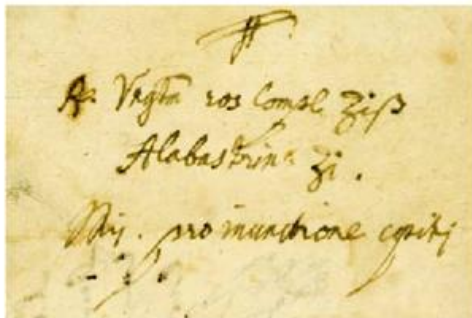 ℞. Vngtū ros Compl ʒiß
Alabastrini ʒi.
Mij. pro inunctione capitis